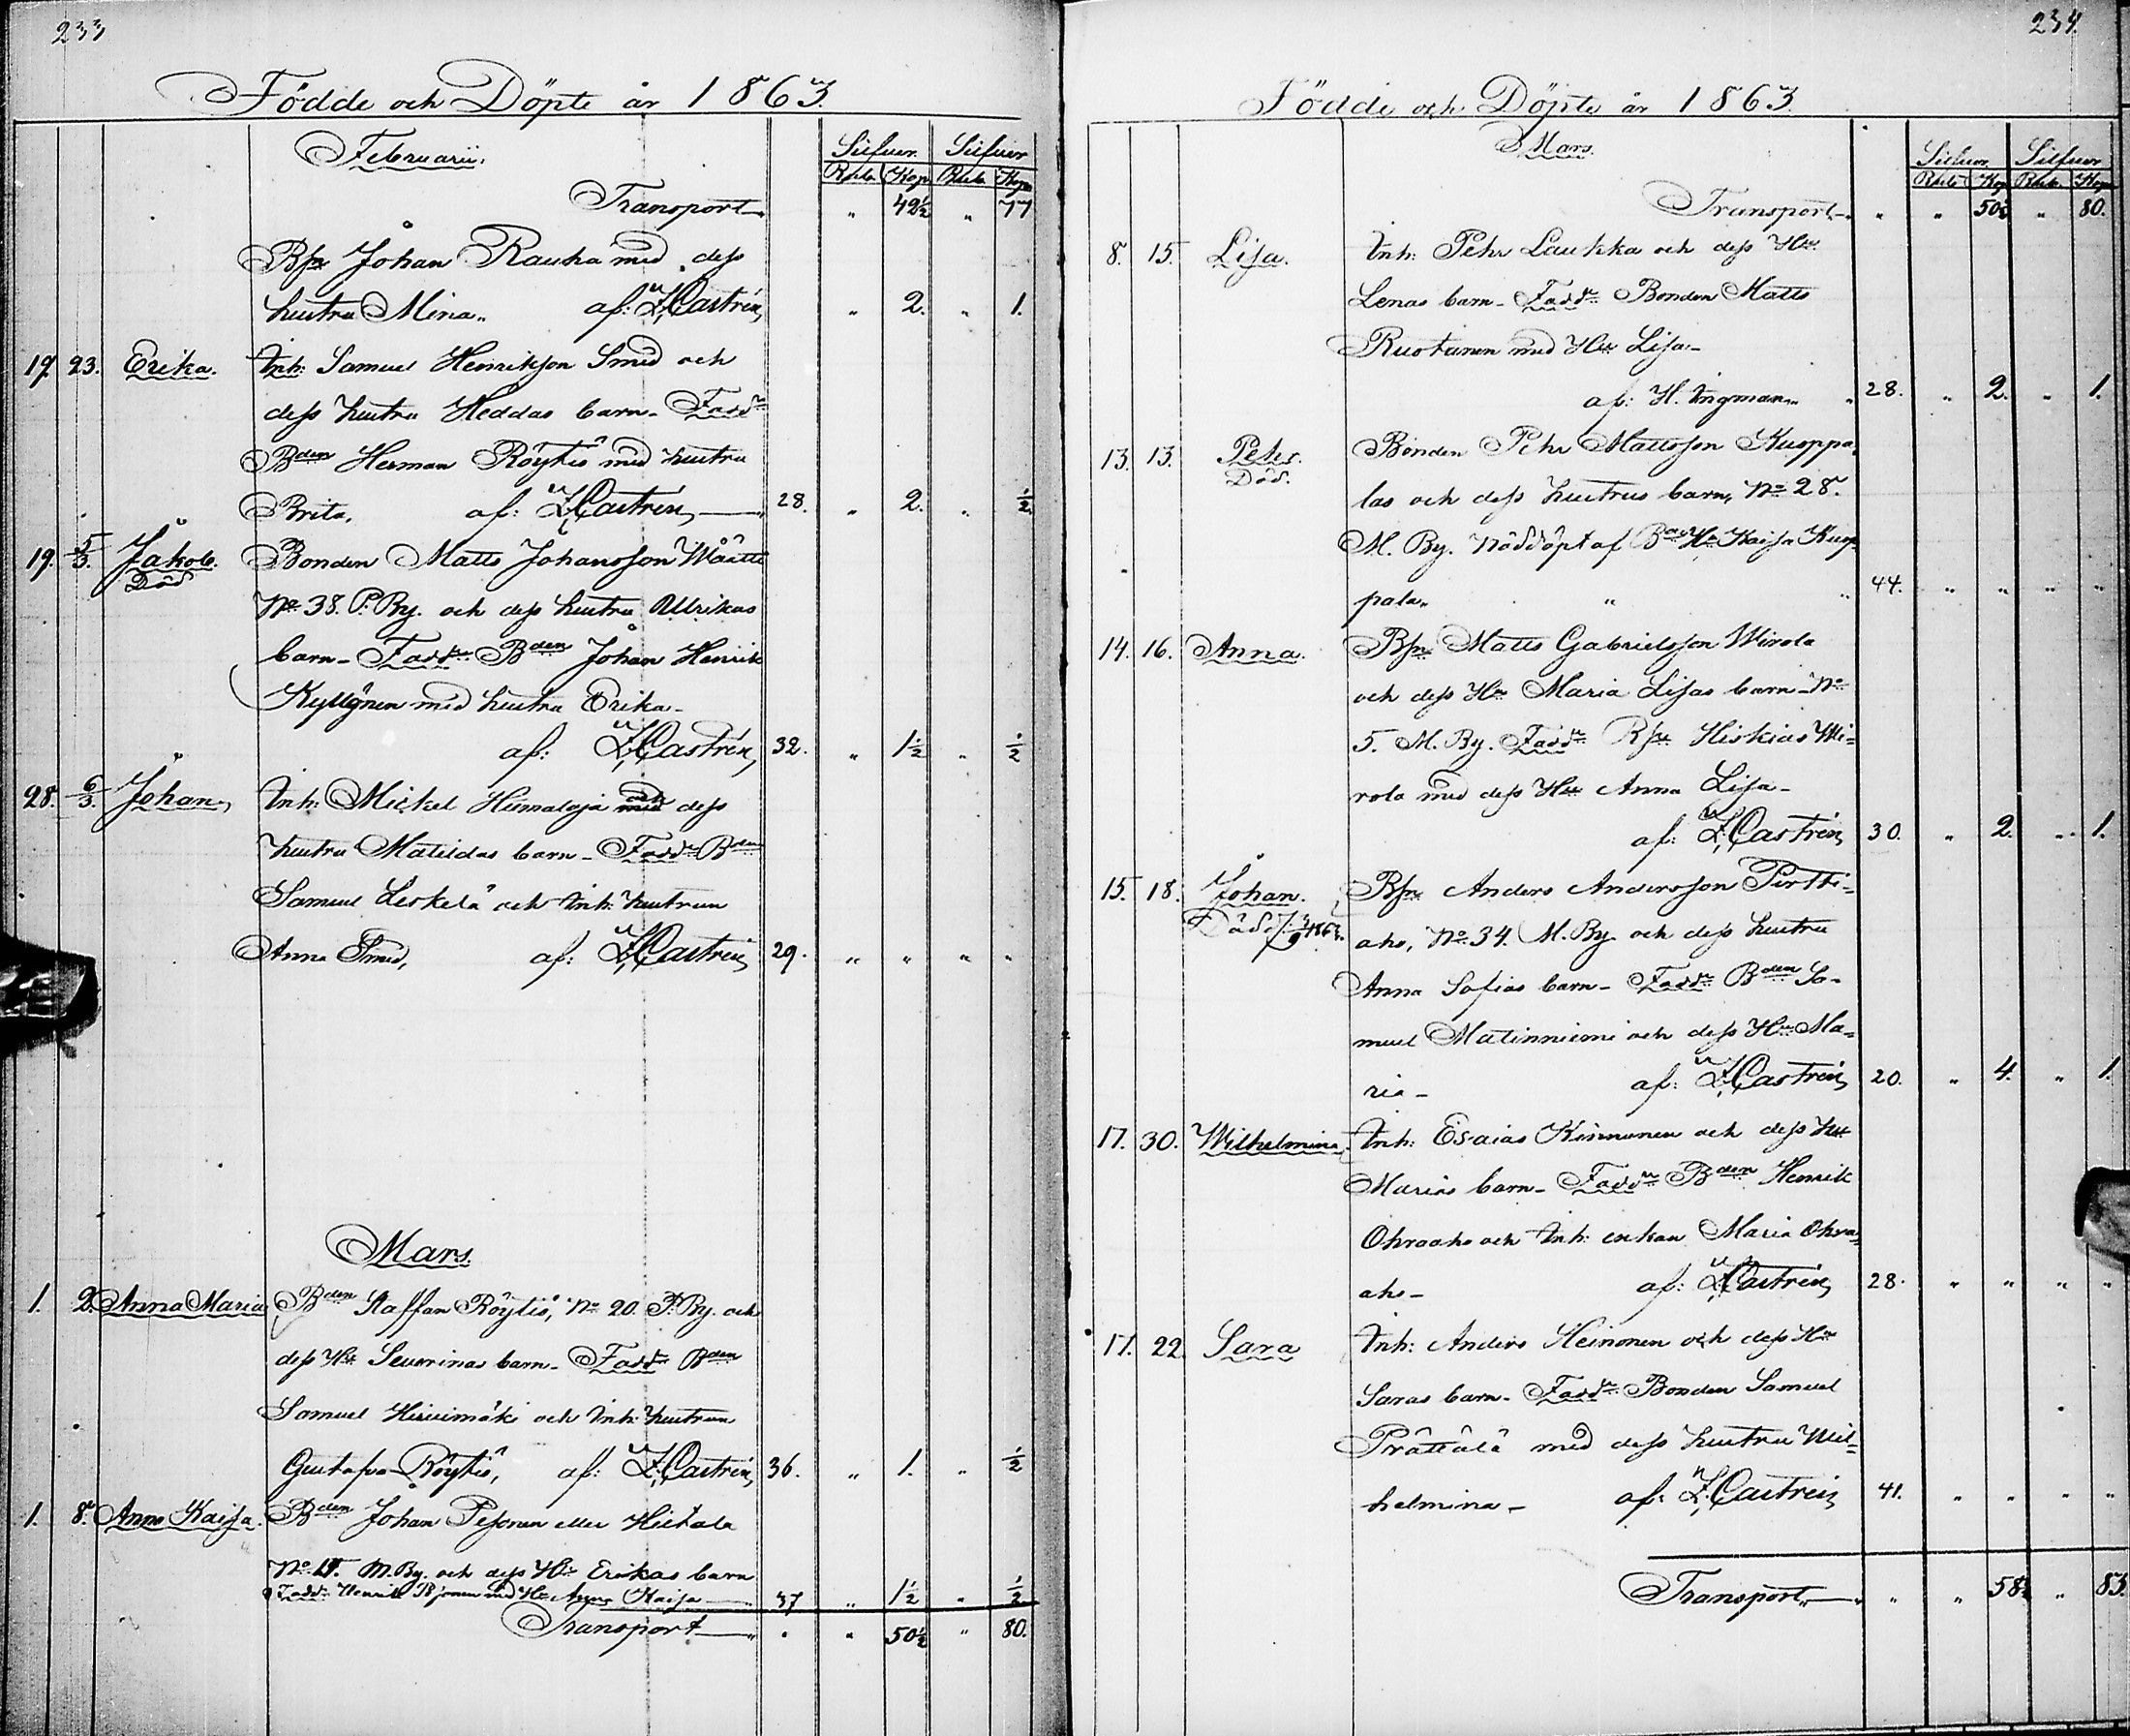 233
Födde och Döpte år 1863.
Februarii.
Silfver. Silfver
Rbl. Kop. Rbl. Kop.
Transport „ 42½ „ 77
Bsn Johan Rauha med dess
hustru Mina„ af: Z. Castrén, „ 2. „ 1.
17. 23. Erika. Inh: Samuel Henriksson Smed och
dess hustru Heddas barn - Faddr
Bden Herman Röytiö med hustru
Brita, af: Z. Castrén, 28. „ 2. „ ½.
19. 5/3. Jakob. Bonden Matts Johansson Määttä
Död
No 38. P. By. och dess hustru Ulrikas
barn - Faddr Bden Johan Henrik
Kyllönen med hustru Erika -
af: Z. Castrén, 32. „ 1½ „ ½
28. 6/3. Johan, Inh: Mickel Heimaloja med och dess
hustru Matildas barn - Faddr Bden
Samuel Leskelä och Inh: hustrun
Anna Smed, af: Z. Castrén, 29. „ „ „ „
Mars.
1. 2. Anna Maria Bden Staffan Röytiö, No 20. P. By. och
dess Hu Severinas barn - Faddr Bden
Samuel Hirvimäki och Inh: hustrun
Gustafva Röytiö, af: Z. Castrén, 36. „ 1. „ ½
1. 8. Anna Kaisa. Bden Johan Pesonen eller Hietala
No 15. M. By. och dess Hu Erikas barn
Faddr Henrik med Hu Anna Kaisa 37 „ 1½ „ ½
Transport „ „ 50½ „ 80.
234.
Födde och Döpte år 1863.
Mars.
Silfver. Silfver
Rbl. Kop. Rbl. Kop.
Transport „ „ 50½ „ 80.
8. 15. Lisa. Inh: Pehr Laukka och dess Hu
Lenas barn - Faddr Bonden Matts
Ruotanen med Hu Lisa -
af: H. Ingman„ 28. „ 2. „ 1.
13. 13. Pehr. Bonden Pehr Mattsson Kuoppa,
Död.
las och dess hustrus barn, No 28.
M. By. Nöddöpt af Hu Kaisa Kuop-
pala„ „ 44. „ „ „ „
14. 16. Anna. Bsn Matts Gabrielsson Wirola
och dess Hu Maria Lisas barn - No
5. M. By. Faddr Bsn Hiskias Wi=
rola med dess Hu Anna Lisa -
af: Z. Castrén, 30. „ 2. „ 1.
15. 18. Johan. Bsn Anders Andersson Pirtti-
aho, No 34. M. By. och dess hustru
Anna Sofias barn - Faddr Bden Sa-
muel Matinniemi och dess Hu Ma=
ria - af: Z. Castrén, 20. „ 4. „ 1.
17. 30. Wilhelmina. Inh: Esaias Kinnunen och dess Hu
Marias barn - Faddr Bden Henrik
Ohraaho och Inh: enkan Maria Ohra=
aho - af: Z. Castrén, 28. „ „ „ „
17. 22. Sara Inh: Anders Heinonen och dess Hu
Saras barn - Faddr Bonden Samuel
Prättälä med dess hustru Wil=
helmina - af: Z. Castrén, 41. „ „ „ „
Transport„ „ „ 58½ „ 83.